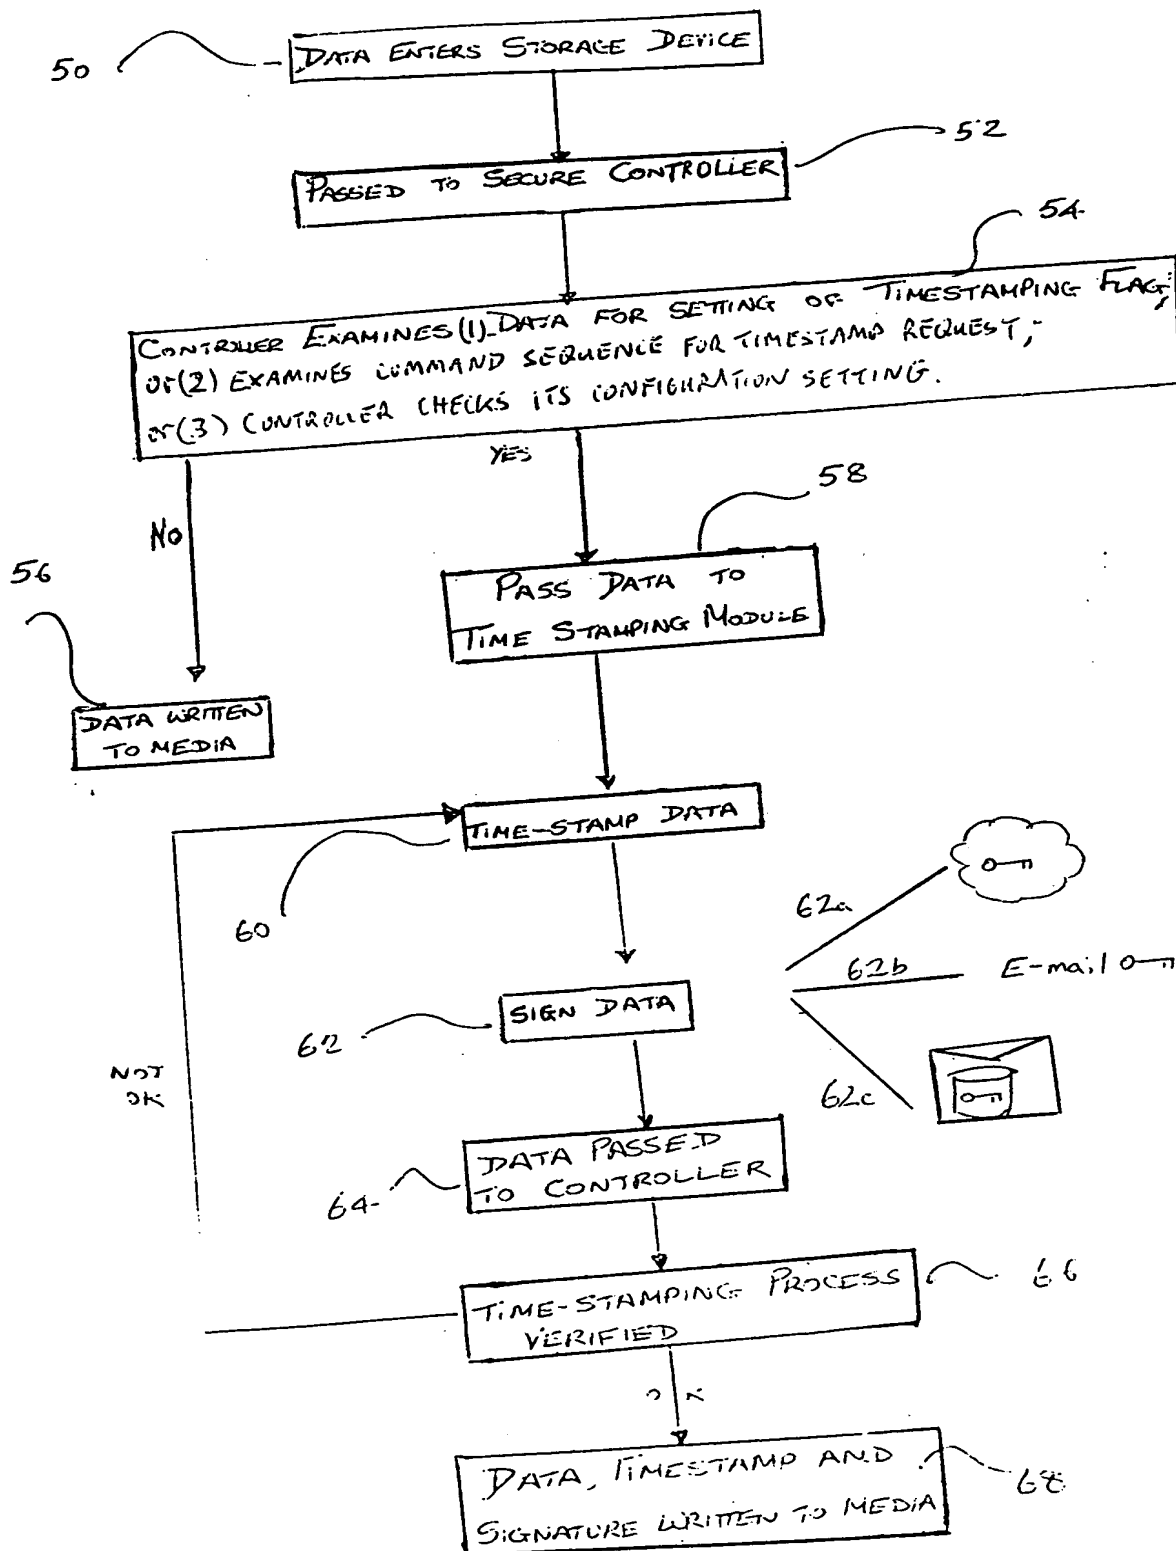 50
DATA ENTERS STORAGE DEVICE
52
PASSED TO SECURE CONTROLLER
54
CONTROLLER EXAMINES (1) DATA FOR SETTING OF TIMESTAMPING FLAG;
or (2) EXAMINES COMMAND SEQUENCE FOR TIMESTAMP REQUEST;
or (3) CONTROLLER CHECKS ITS CONFIGURATION SETTING.
YES
NO
58
56
PASS DATA TO
TIME STAMPING MODULE
DATA WRITTEN
TO MEDIA
TIME-STAMP DATA
60
62a
62b
E-mail
SIGN DATA
62
62c
NOT
OK
DATA PASSED
TO CONTROLLER
64
TIME-STAMPING PROCESS
VERIFIED
66
OK
DATA, TIMESTAMP AND
SIGNATURE WRITTEN TO MEDIA
68